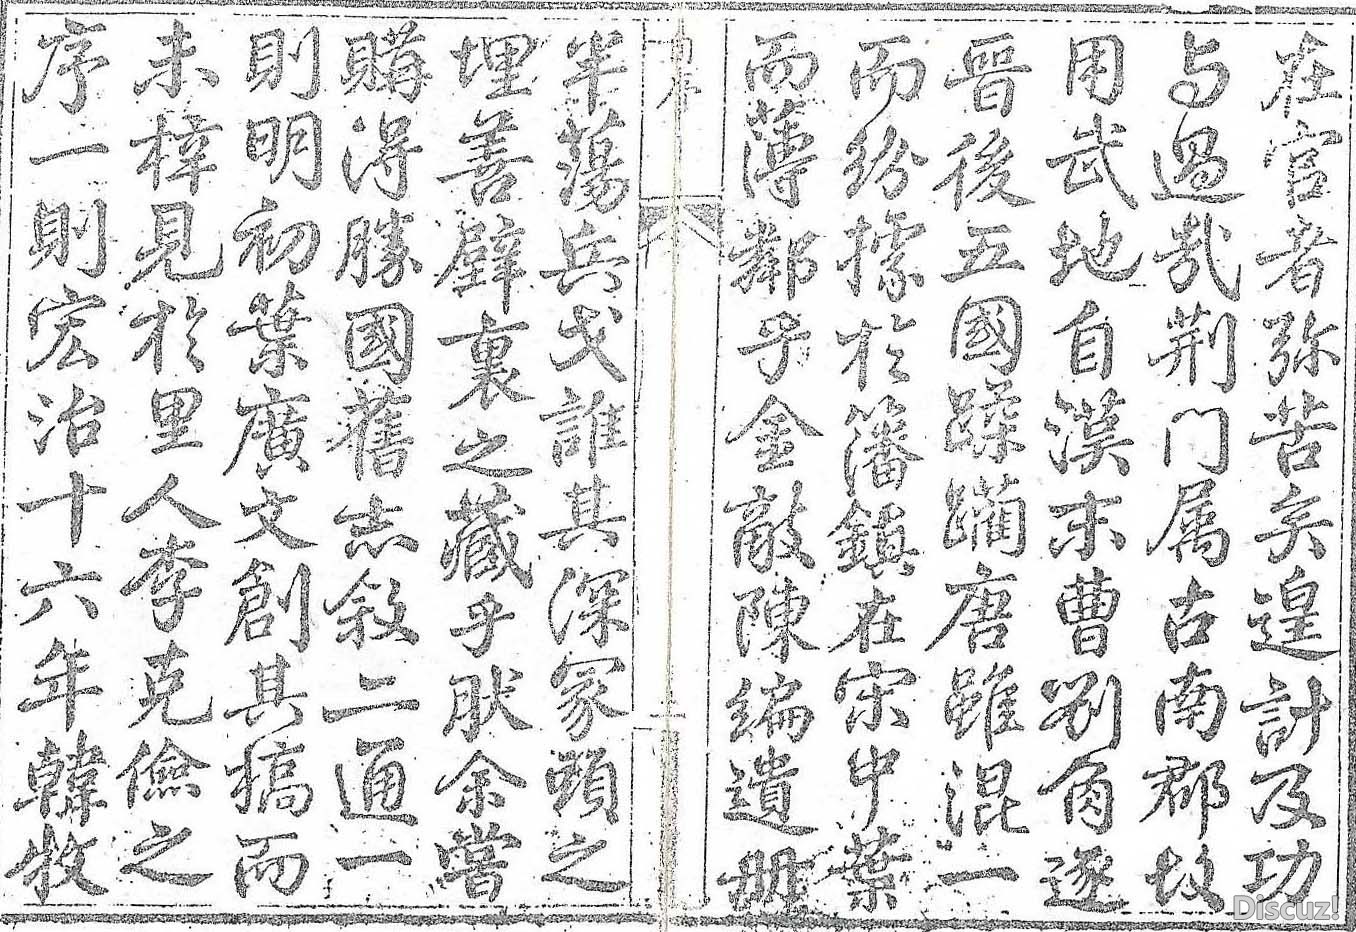 在官者弥苦矣遑計及功
与過哉荆门属古南郡故
用武地自漢末曹劉角逐
晋後五國蹂躪唐雖混一
而紛據於籓鎮在宋中葉
而薄鄰乎金敵陳編遺冊
半蕩兵戈誰其深冢之
埋善壁裏之藏乎肰余嘗
購得勝國舊志叙二通一
則明初葉廣文創其搞而
未梓見於里人李克儉之
序一則宏治十六年韓牧
Discuz!